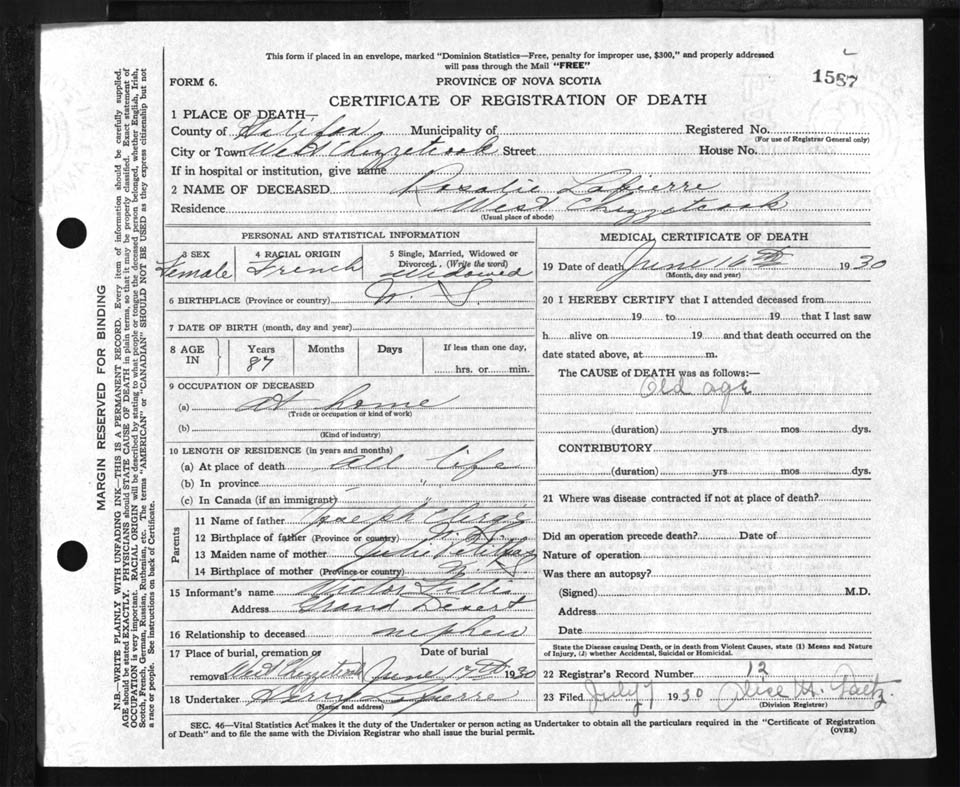 This form if placed in an envelope, marked "Dominion Statistics—Free, penalty for improper use, $300," and properly addressed
will pass through the Mail "FREE"
1587
FORM 6. PROVINCE OF NOVA SCOTIA
CERTIFICATE OF REGISTRATION OF DEATH
1 PLACE OF DEATH—
County of Halifax Municipality of Registered No.
(For use of Registrar General only)
City or Town West Chezzetcook Street House No.
If in hospital or institution, give name
2 NAME OF DECEASED Rosalie Lapierre
Residence West Chezzetcook
(Usual place of abode)
PERSONAL AND STATISTICAL INFORMATION
3 SEX 4 RACIAL ORIGIN 5 Single, Married, Widowed or
Divorced. (Write the word)
Female French Widowed
6 BIRTHPLACE (Province or country) N. S.
7 DATE OF BIRTH (month, day and year)
8 AGE IN Years Months Days If less than one day,
87 hrs. or min.
9 OCCUPATION OF DECEASED
(a) at home
(Trade or occupation or kind of work)
(b)
(Kind of industry)
10 LENGTH OF RESIDENCE (in years and months)
(a) At place of death all life
(b) In province " "
(c) In Canada (if an immigrant) " "
Parents
11 Name of father Joseph
12 Birthplace of father (Province or country) N. S.
13 Maiden name of mother Julie
14 Birthplace of mother (Province or country) N. S.
15 Informant's name Victor
Address Grand Desert
16 Relationship to deceased nephew
17 Place of burial, cremation or Date of burial
removal West Chezzetcook June 17th 1930
18 Undertaker Lapierre
(Name and address)
MEDICAL CERTIFICATE OF DEATH
19 Date of death June 16th 1930
(Month, day and year)
20 I HEREBY CERTIFY that I attended deceased from
19 to 19 that I last saw
h alive on 19 and that death occurred on the
date stated above, at m.
The CAUSE of DEATH was as follows:—
Old age
(duration) yrs mos dys.
CONTRIBUTORY
(duration) yrs mos dys.
21 Where was disease contracted if not at place of death?
Did an operation precede death? Date of
Nature of operation
Was there an autopsy?
(Signed) M.D.
Address
Date
State the Disease causing Death, or in death from Violent Causes, state (1) Means and
Nature of Injury, (2) whether Accidental, Suicidal or Homicidal.
22 Registrar's Record Number 12
23 Filed July 7 1930 Alice H. Gaetz
(Division Registrar)
SEC. 46—Vital Statistics Act makes it the duty of the Undertaker or person acting as Undertaker to obtain all the particulars required in the "Certificate of Registration
of Death" and to file the same with the Division Registrar who shall issue the burial permit.
(OVER)
MARGIN RESERVED FOR BINDING
N.B.—WRITE PLAINLY WITH UNFADING INK—THIS IS A PERMANENT RECORD. Every item of information should be carefully supplied.
AGE should be stated EXACTLY. PHYSICIANS should STATE CAUSE OF DEATH in plain terms, so that it may be properly classified. Exact statement of
OCCUPATION is very important. RACIAL ORIGIN will be described by stating to what people or tongue the deceased person belonged, whether English, Irish,
Scotch, French, German, Russian, Ruthenian, etc. The terms "AMERICAN" or "CANADIAN" SHOULD NOT BE USED as they express citizenship but not
a race or people. See instructions on back of Certificate.